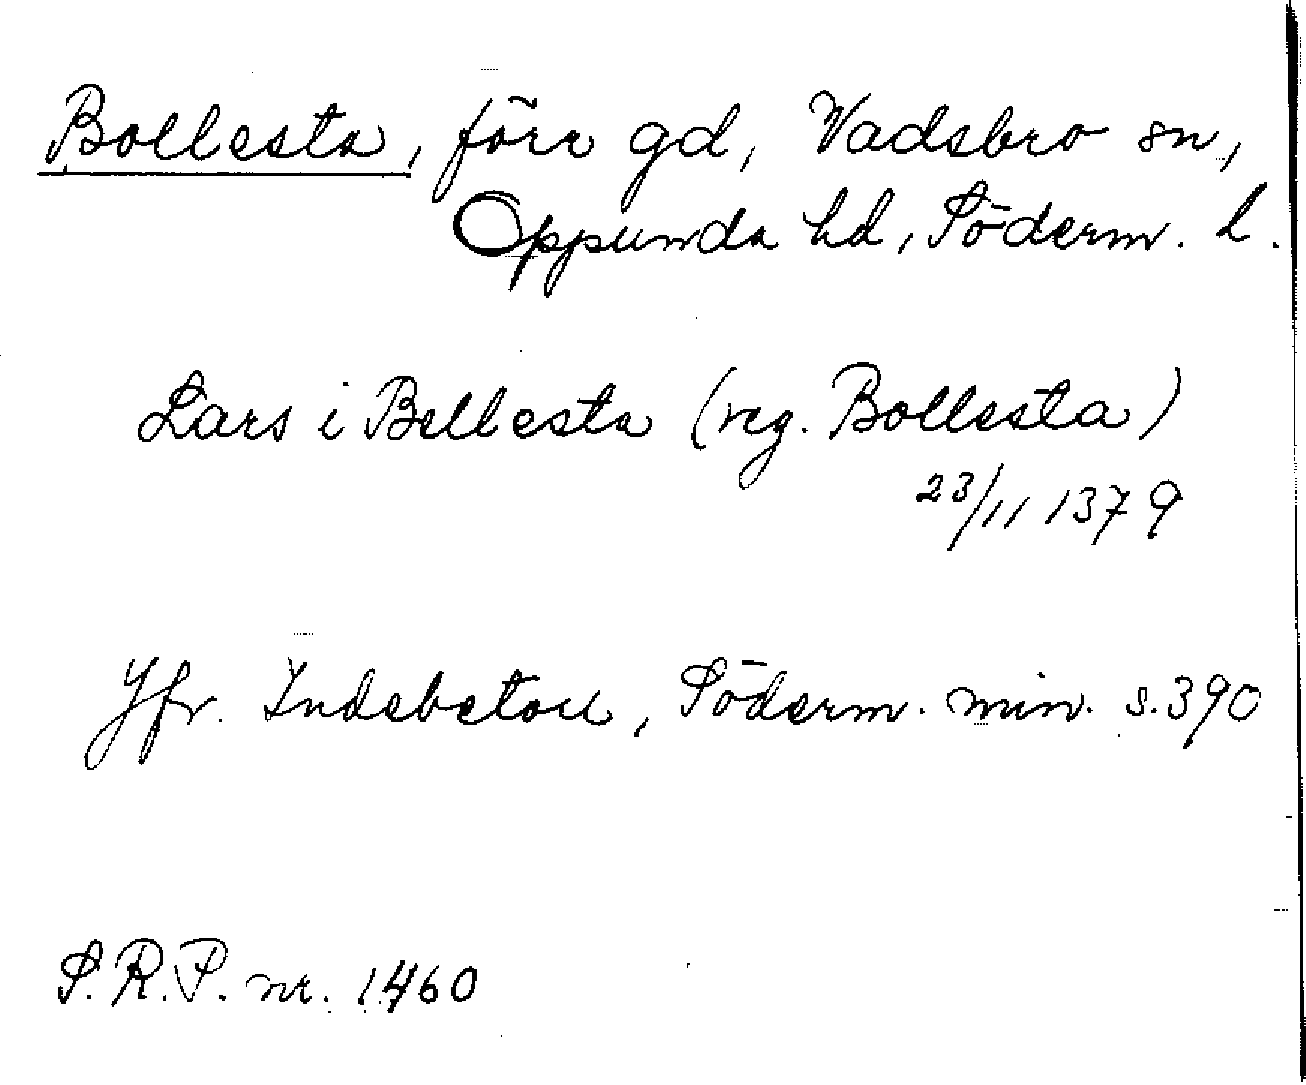 Bollesta, förr gd, Vadsbro sn,
Oppunda hd, Söderm. l.
Lars i Bellesta (reg. Bollesta)
23/11 1379
Jfr. Indebetou, Söderm. min. s. 390
S.R.P. nr. 1460